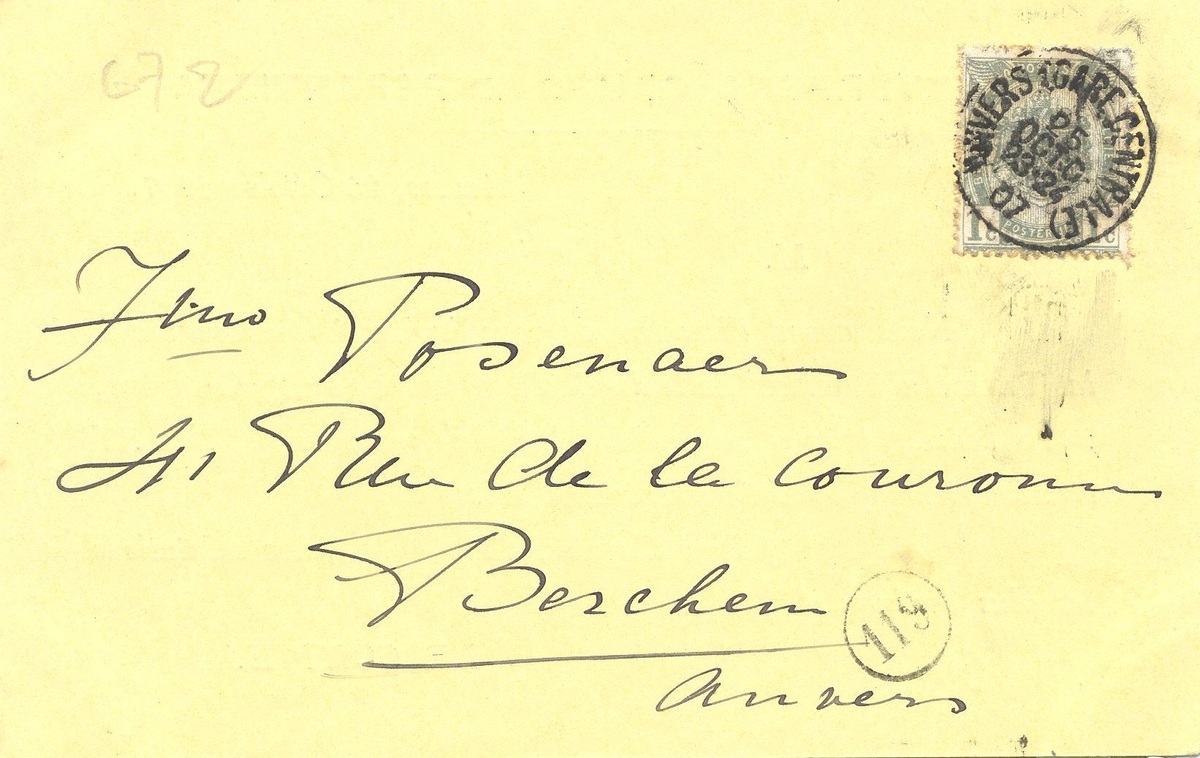 67 2
ANVERS (GARE CENTRALE)
25
OCTO
07
1c 1c
POSTER
Posenaer
41 Rue de la Couronne
Berchem
Anvers
113